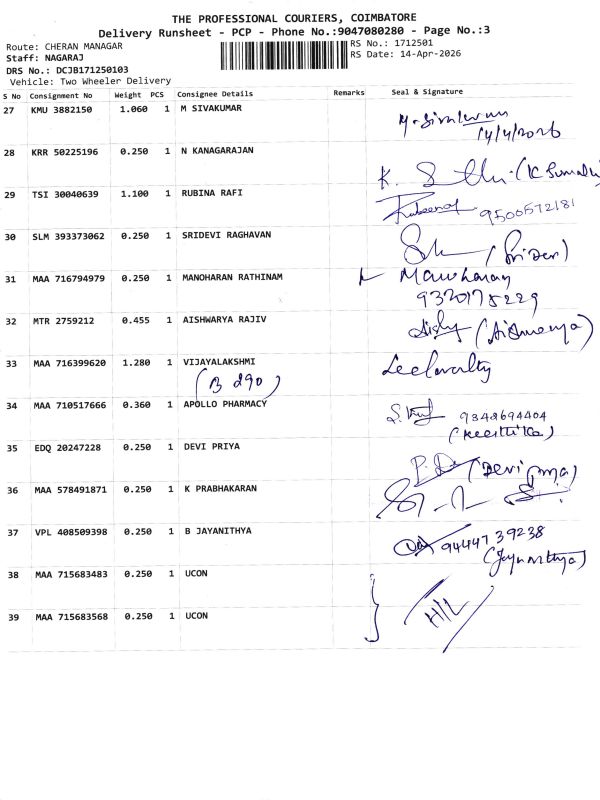 THE PROFESSIONAL COURIERS, COIMBATORE
Delivery Runsheet - PCP - Phone No.:9047080280 - Page No.:3
Route: CHERAN MANAGAR
RS No.: 1712501
Staff: NAGARAJ
RS Date: 14-Apr-2026
DRS No.: DCJB171250103
Vehicle: Two Wheeler Delivery
S No Consignment No Weight PCS Consignee Details Remarks Seal & Signature
27 KMU 3882150 1.060 1 M SIVAKUMAR M. Sivakumar
14/4/2026
28 KRR 50225196 0.250 1 N KANAGARAJAN K.
29 TSI 30040639 1.100 1 RUBINA RAFI 9500572181
30 SLM 393373062 0.250 1 SRIDEVI RAGHAVAN
31 MAA 716794979 0.250 1 MANOHARAN RATHINAM Manoharan
9320175229
32 MTR 2759212 0.455 1 AISHWARYA RAJIV Aishy (Aishwarya)
33 MAA 716399620 1.280 1 VIJAYALAKSHMI
(B 290)
34 MAA 710517666 0.360 1 APOLLO PHARMACY 9342694404
(Keerthika)
35 EDQ 20247228 0.250 1 DEVI PRIYA P.D. (Devi priya)
36 MAA 578491871 0.250 1 K PRABHAKARAN
37 VPL 408509398 0.250 1 B JAYANITHYA 9444739238
(Jayanithya)
38 MAA 715683483 0.250 1 UCON
H/L
39 MAA 715683568 0.250 1 UCON